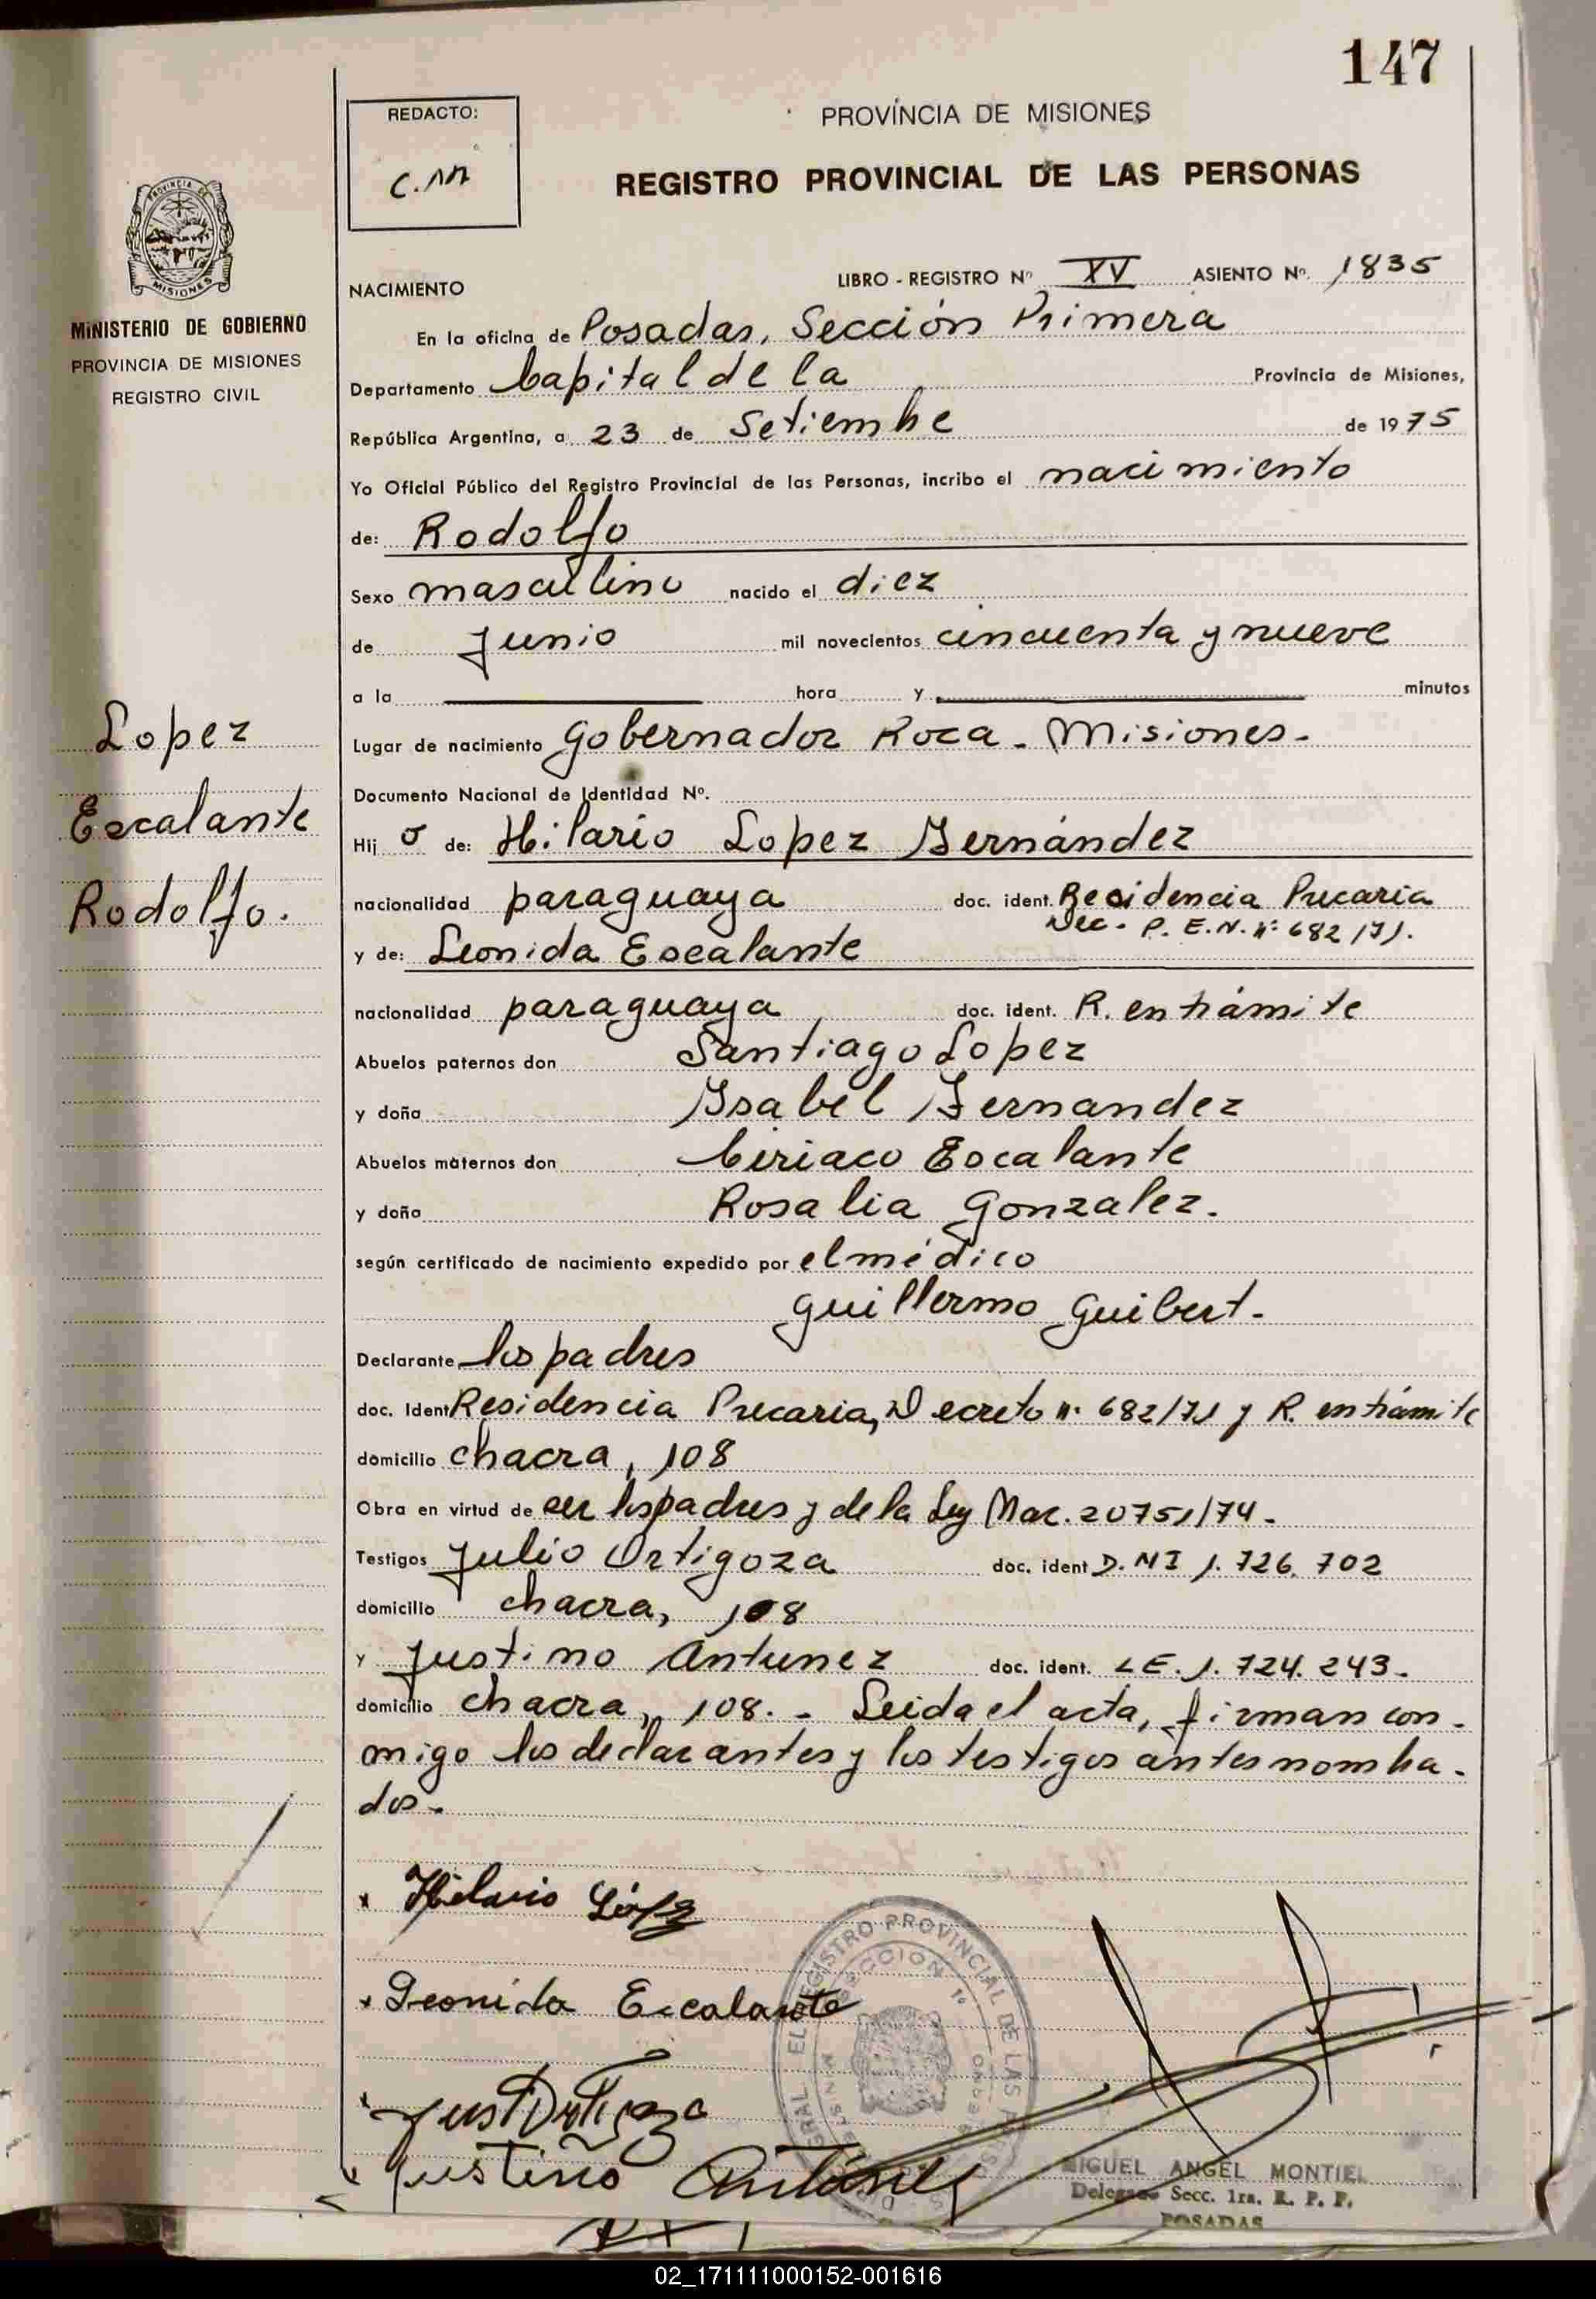 147
REDACTO:
C.M
PROVÍNCIA DE MISIONES
REGISTRO PROVINCIAL DE LAS PERSONAS
PROVINCIA DE
MISIONES
MINISTERIO DE GOBIERNO
PROVINCIA DE MISIONES
REGISTRO CIVIL
NACIMIENTO LIBRO - REGISTRO Nº XV ASIENTO Nº. 1835
En la oficina de Posadas, Sección Primera
Departamento Capital de la Provincia de Misiones,
República Argentina, a 23 de Setiembre de 1975
Yo Oficial Público del Registro Provincial de las Personas, incribo el nacimiento
de: Rodolfo
Sexo masculino nacido el diez
de Junio mil novecientos cincuenta y nueve
a la hora y minutos
Lopez
Escalante
Rodolfo.
Lugar de nacimiento Gobernador Roca - Misiones.
Documento Nacional de Identidad Nº.
Hij o de: Hilario Lopez Fernández
nacionalidad paraguaya doc. ident. Residencia Precaria
Dec. P.E.N. nº 682/71.
y de: Leonida Escalante
nacionalidad paraguaya doc. ident. R. en trámite
Abuelos paternos don Santiago Lopez
y doña Ysabel Fernandez
Abuelos maternos don Ciriaco Escalante
y doña Rosalia Gonzalez.
según certificado de nacimiento expedido por el médico
Guillermo Guibert.
Declarante los padres
doc. Ident Residencia Precaria, Decreto nº 682/71 y R. en trámite
domicilio chacra, 108
Obra en virtud de ser los padres y de la Ley Nac. 20751/74.
Testigos Julio Ortigoza doc. ident D.NI 1.726.702
domicilio chacra, 108
y Justino Antunez doc. ident. LE. 1.724.243.
domicilio chacra, 108. - Leida el acta, firman con-
migo los declarantes y los testigos antes nombra-
dos.
x Hilario López
x Leonida Escalante
Justino Antúnez
REGISTRO PROVINCIAL DE LAS
SECCION 1ª
MIGUEL ANGEL MONTIEL
Delegado Secc. 1ra. R. P. P.
POSADAS
02_171111000152-001616